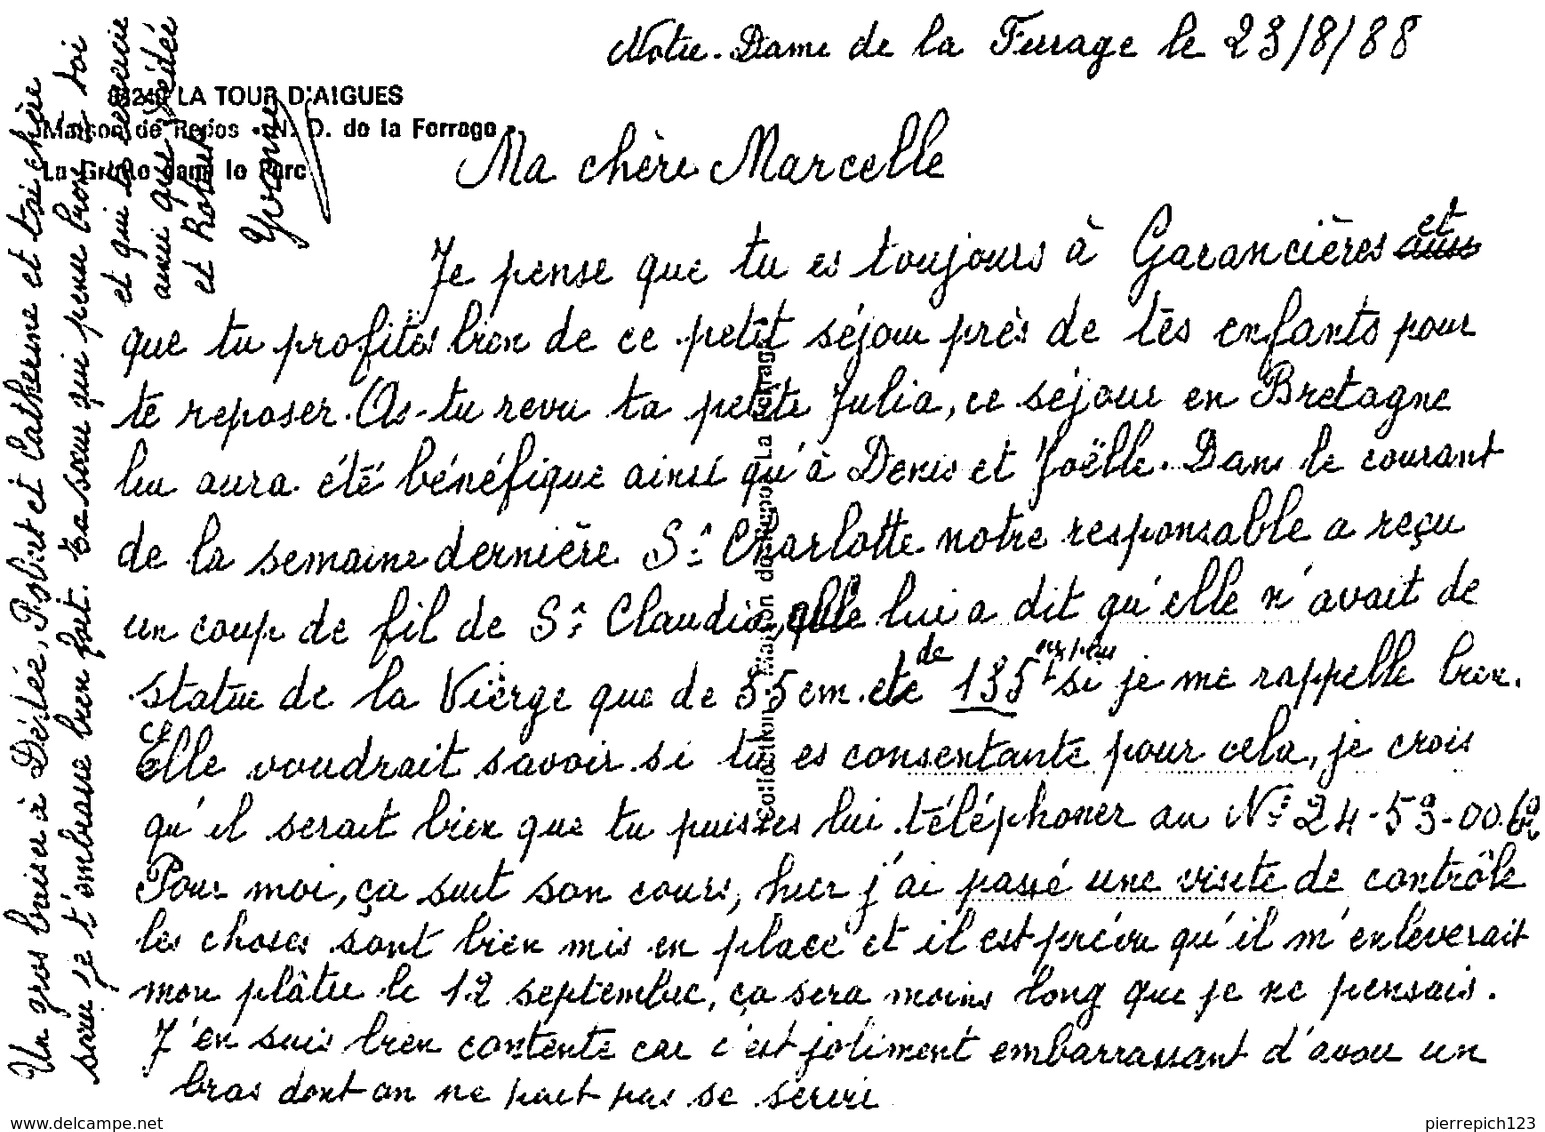 Notre-Dame de la Ferrage le 23/8/88
84240 LA TOUR D'AIGUES
Maison de Repos - N. D. de la Ferrage
La Grotte dans le Parc
Ma chère Marcelle
Je pense que tu es toujours à Garancières et
que tu profites bien de ce petit séjour près de tes enfants pour
te reposer. As-tu revu ta petite Julia, ce séjour en Bretagne
lui aura été bénéfique ainsi qu'à Denis et Joëlle. Dans le courant
de la semaine dernière Sr Charlotte notre responsable a reçu
un coup de fil de Sr Claudia, elle lui a dit qu'elle n'avait de
statue de la Vierge que de 55 cm et de 135 si je me rappelle bien.
Elle voudrait savoir si tu es consentante pour cela, je crois
qu'il serait bien que tu puisses lui téléphoner au N° 24-53-00.62
Pour moi, ça suit son cours, hier j'ai passé une visite de contrôle
les choses sont bien mis en place et il est prévu qu'il m'enlèverait
mon plâtre le 12 septembre, ça sera moins long que je ne pensais.
J'en suis bien contente car c'est joliment embarrassant d'avoir un
bras dont on ne peut pas se servir
Un gros baiser à Désirée, Robert et Catherine et toi chère
sœur je t'embrasse bien fort. Ta sœur qui pense bien à toi
et qui te remercie
ainsi que Désirée
et Robert
Yvonne
Collection Maison de Repos La Ferrage
www.delcampe.net
pierrepich123